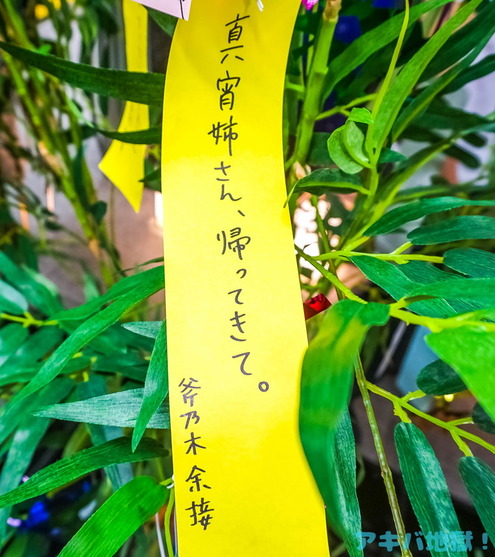 真宵姉さん、帰ってきて。
斧乃木余接
アキバ地獄!